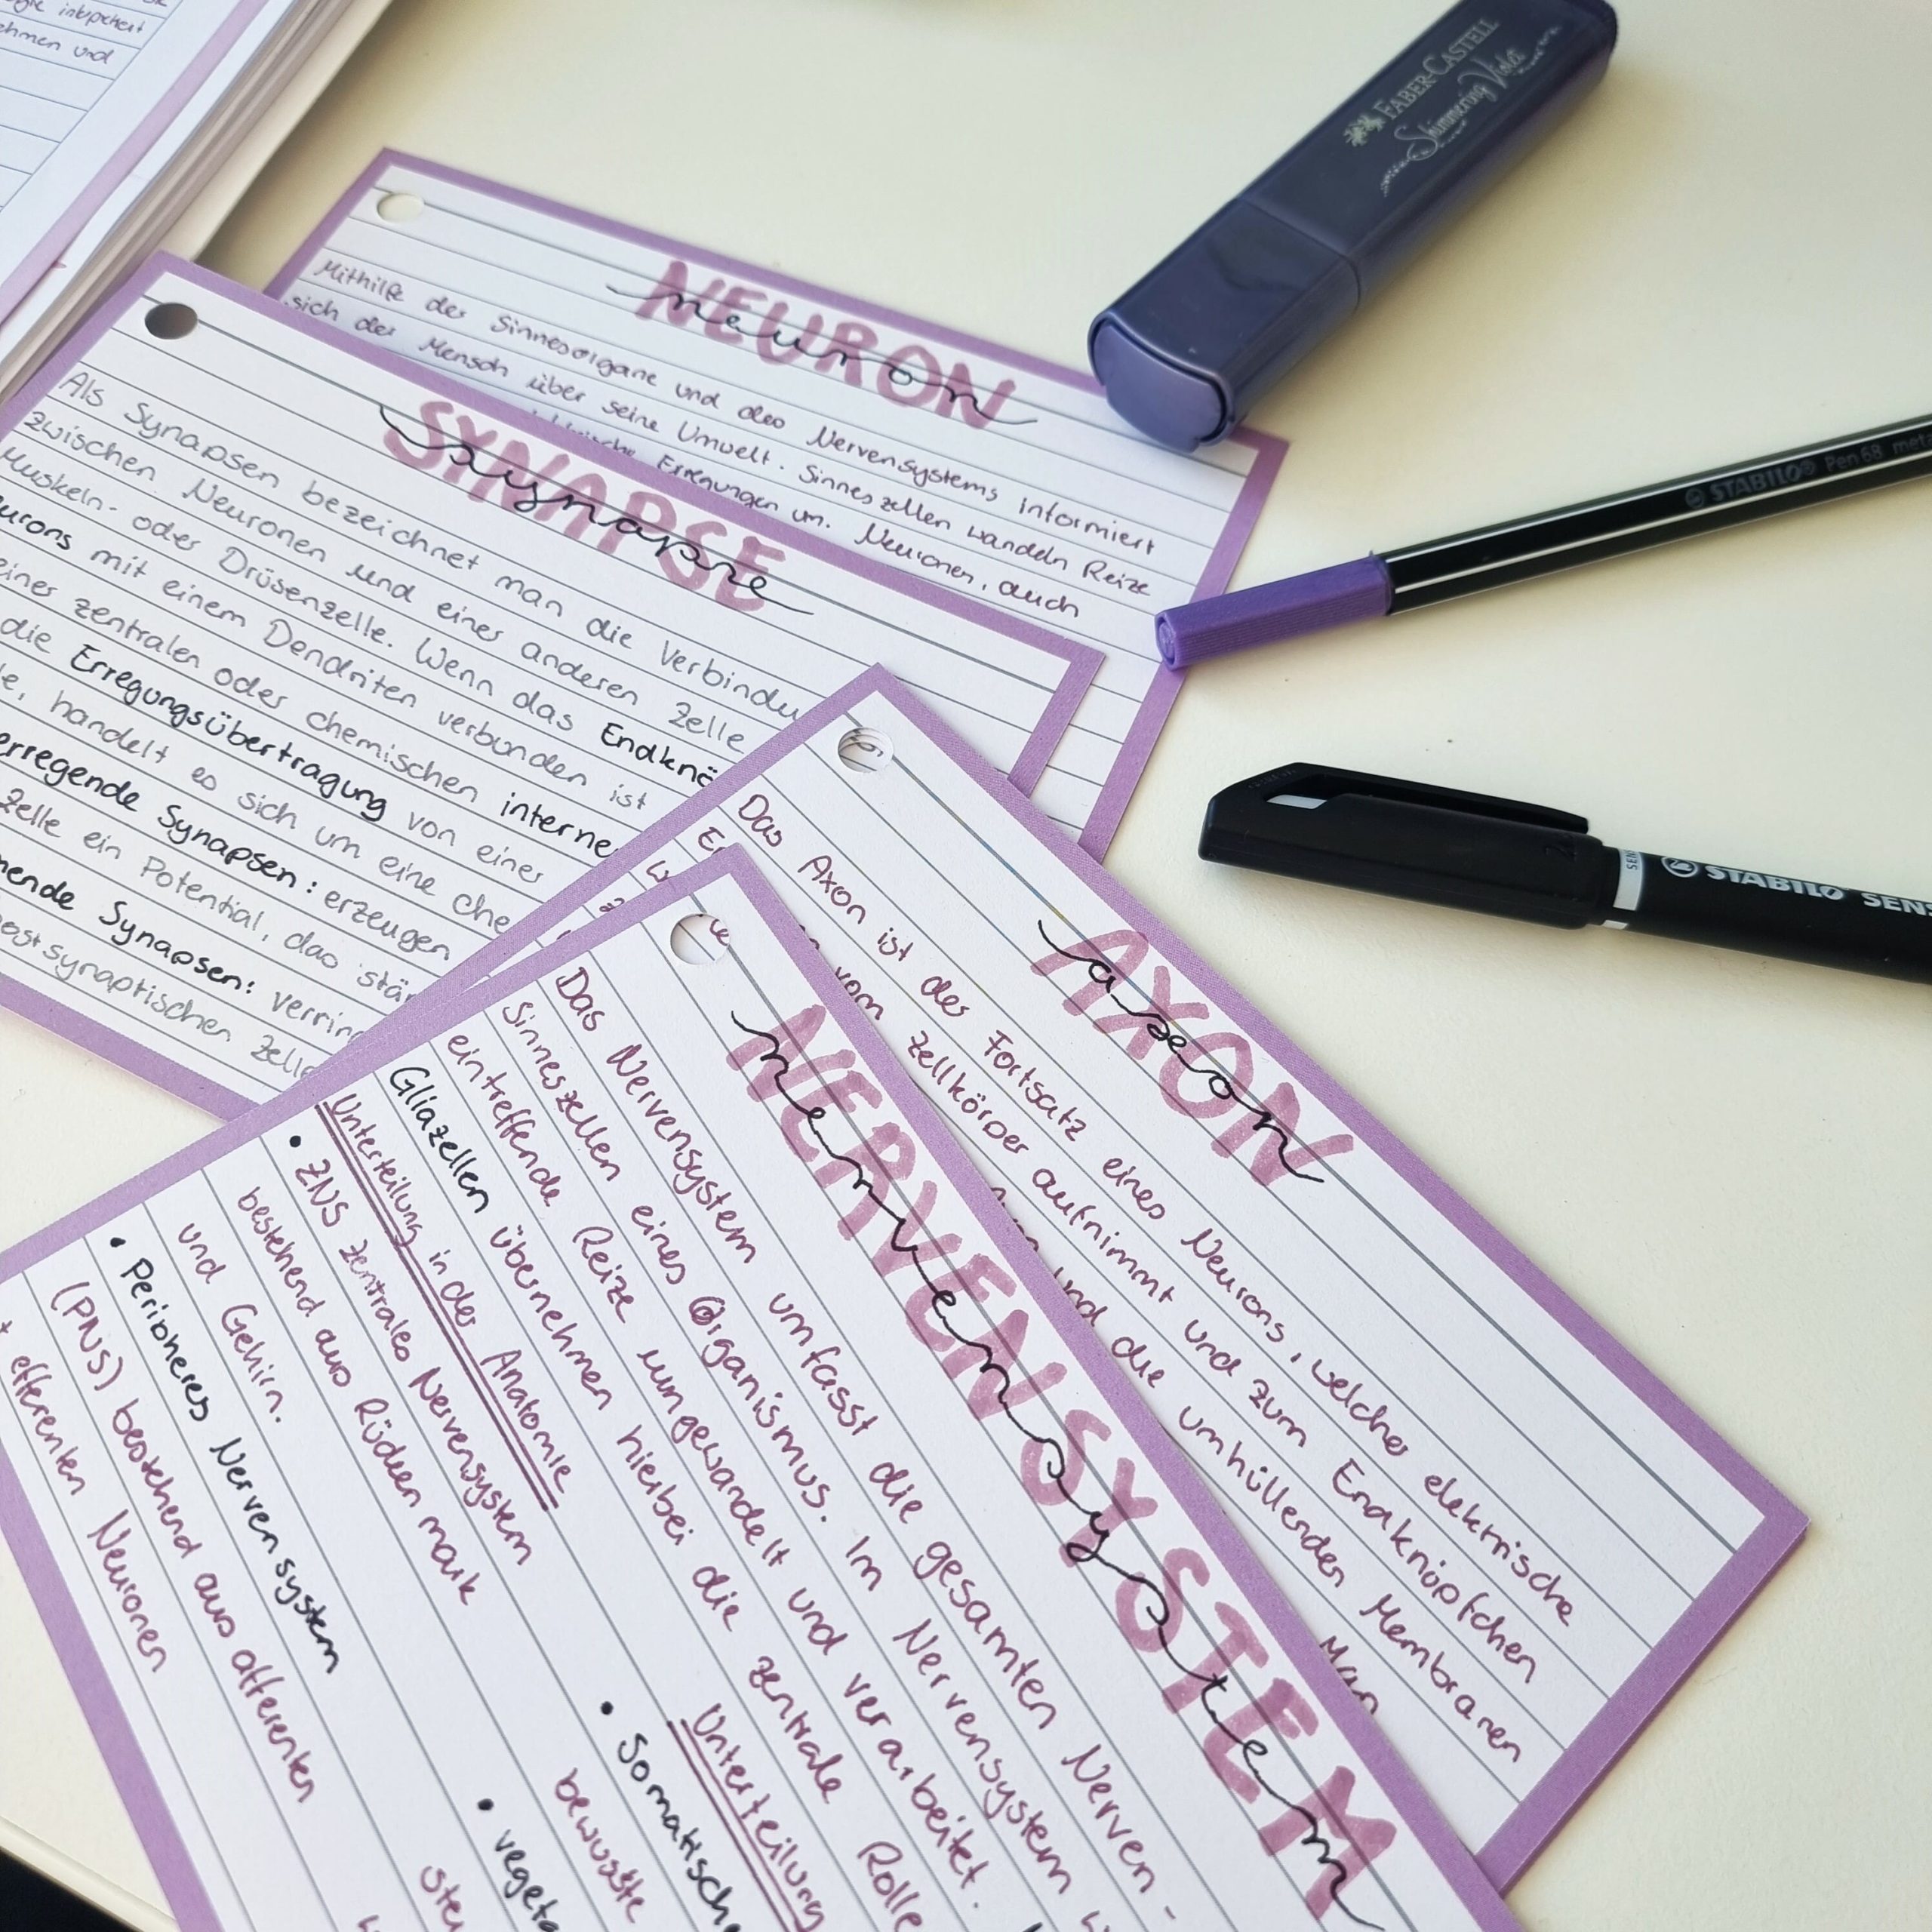 ehmen und
FABER-CASTELL
Shimmering Violet
STABILO® Pen 68 meta
STABILO SENS
NEURON
neuron
Mithilfe der Sinnesorgane und des Nervensystems informiert
sich der Mensch über seine Umwelt. Sinneszellen wandeln Reize
Erregungen um. Neuronen, auch
SYNAPSE
synapse
Als Synapsen bezeichnet man die Verbindu
zwischen Neuronen und einer anderen Zelle
Muskel- oder Drüsenzelle. Wenn das Endknö
urons mit einem Dendriten verbunden ist
einer zentralen oder chemischen interne
die Erregungsübertragung von einer
te, handelt es sich um eine che
erregende Synapsen: erzeugen
zelle ein Potential, das stär
mende Synapsen: verring
postsynaptischen Zelle
AXON
axon
Das Axon ist der Fortsatz eines Neurons, welcher elektrische
vom Zellkörper aufnimmt und zum Endknöpfchen
und die umhüllenden Membranen
Man
NERVENSYSTEM
nervensystem
Das Nervensystem umfasst die gesamten Nerven-
Sinneszellen eines Organismus. Im Nervensystem w
eintreffende Reize umgewandelt und verarbeitet.
Gliazellen übernehmen hierbei die zentrale Rolle
Unterteilung in der Anatomie
• ZNS zentrales Nervensystem
bestehend aus Rückenmark
und Gehirn.
• Peripheres Nervensystem
(PNS) bestehend aus afferenten
+ efferenten Neuronen
Unterteilung
• Somatische
bewusste
• vegeta
ste